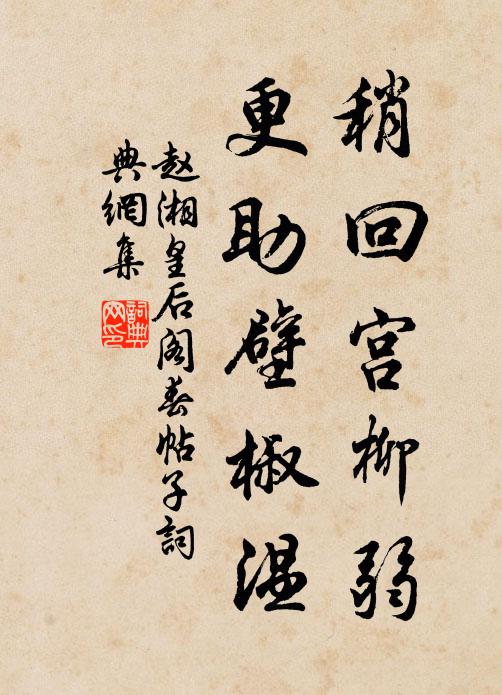 稍回宫柳弱
更助壁椒温
赵湘皇后阁春帖子詞
典網集
詞典網印